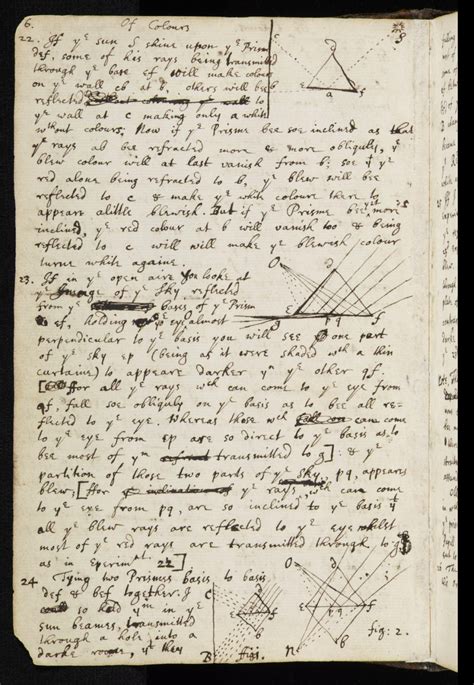 6. Of Colours
22. If yᵉ sun S shine upon yᵉ Prism
def, some of his rays being transmitted
through yᵉ base ef will make colours
on yᵉ wall cb at b, others will bee
reflected to
yᵉ wall at c making only a white
wᵗʰout colours, Now if yᵉ Prisme bee soe inclined as that
yᵉ rays ab bee refracted more & more obliquly, yᵉ
blew colour will at last vanish from b; soe yᵗ yᵉ
red alone being refracted to b, yᵉ blew will bee
reflected to c & make yᵉ white colour there to
appeare alittle blewish. But if yᵉ Prisme bee yet more
inclined, yᵉ red colour at b will vanish too & being
reflected to c will will make yᵉ blewish colour
turne white againe.
23. If in yᵉ open aire you looke at
yᵉ Image of yᵉ Sky reflected
from yᵉ basis of yᵉ Prism
ef, holding yoʳ eye almost
perpendicular to yᵉ basis you will see one part
of yᵉ sky ep (being as it were shaded wᵗʰ a thin
curtaine) to appeare darker yⁿ yᵉ other qf.
[ffor all yᵉ rays wᶜʰ can come to yᵉ eye from
qf, fall soe obliquly on yᵉ basis as to bee all re-
flected to yᵉ eye. Whereas those wᶜʰ can come
to yᵉ eye from ep are so direct to yᵉ basis as to
bee most of yᵐ transmitted to g]: & yᵉ
partition of those two parts of yᵉ sky, pq, appeares
blew; [ffor yᵉ rays wᶜʰ can come
to yᵉ eye from pq, are so inclined to yᵉ basis yᵗ
all yᵉ blew rays are reflected to yᵉ eye whilst
most of yᵉ red rays are transmitted through to g
as in Experimᵗ 22]
24 Tying two Prismes basis to basis
def & bef together. I
so held yᵐ in yᵉ
sun beames, transmitted
through a hole into a
darke roome, yᵗ they
fig: 2.